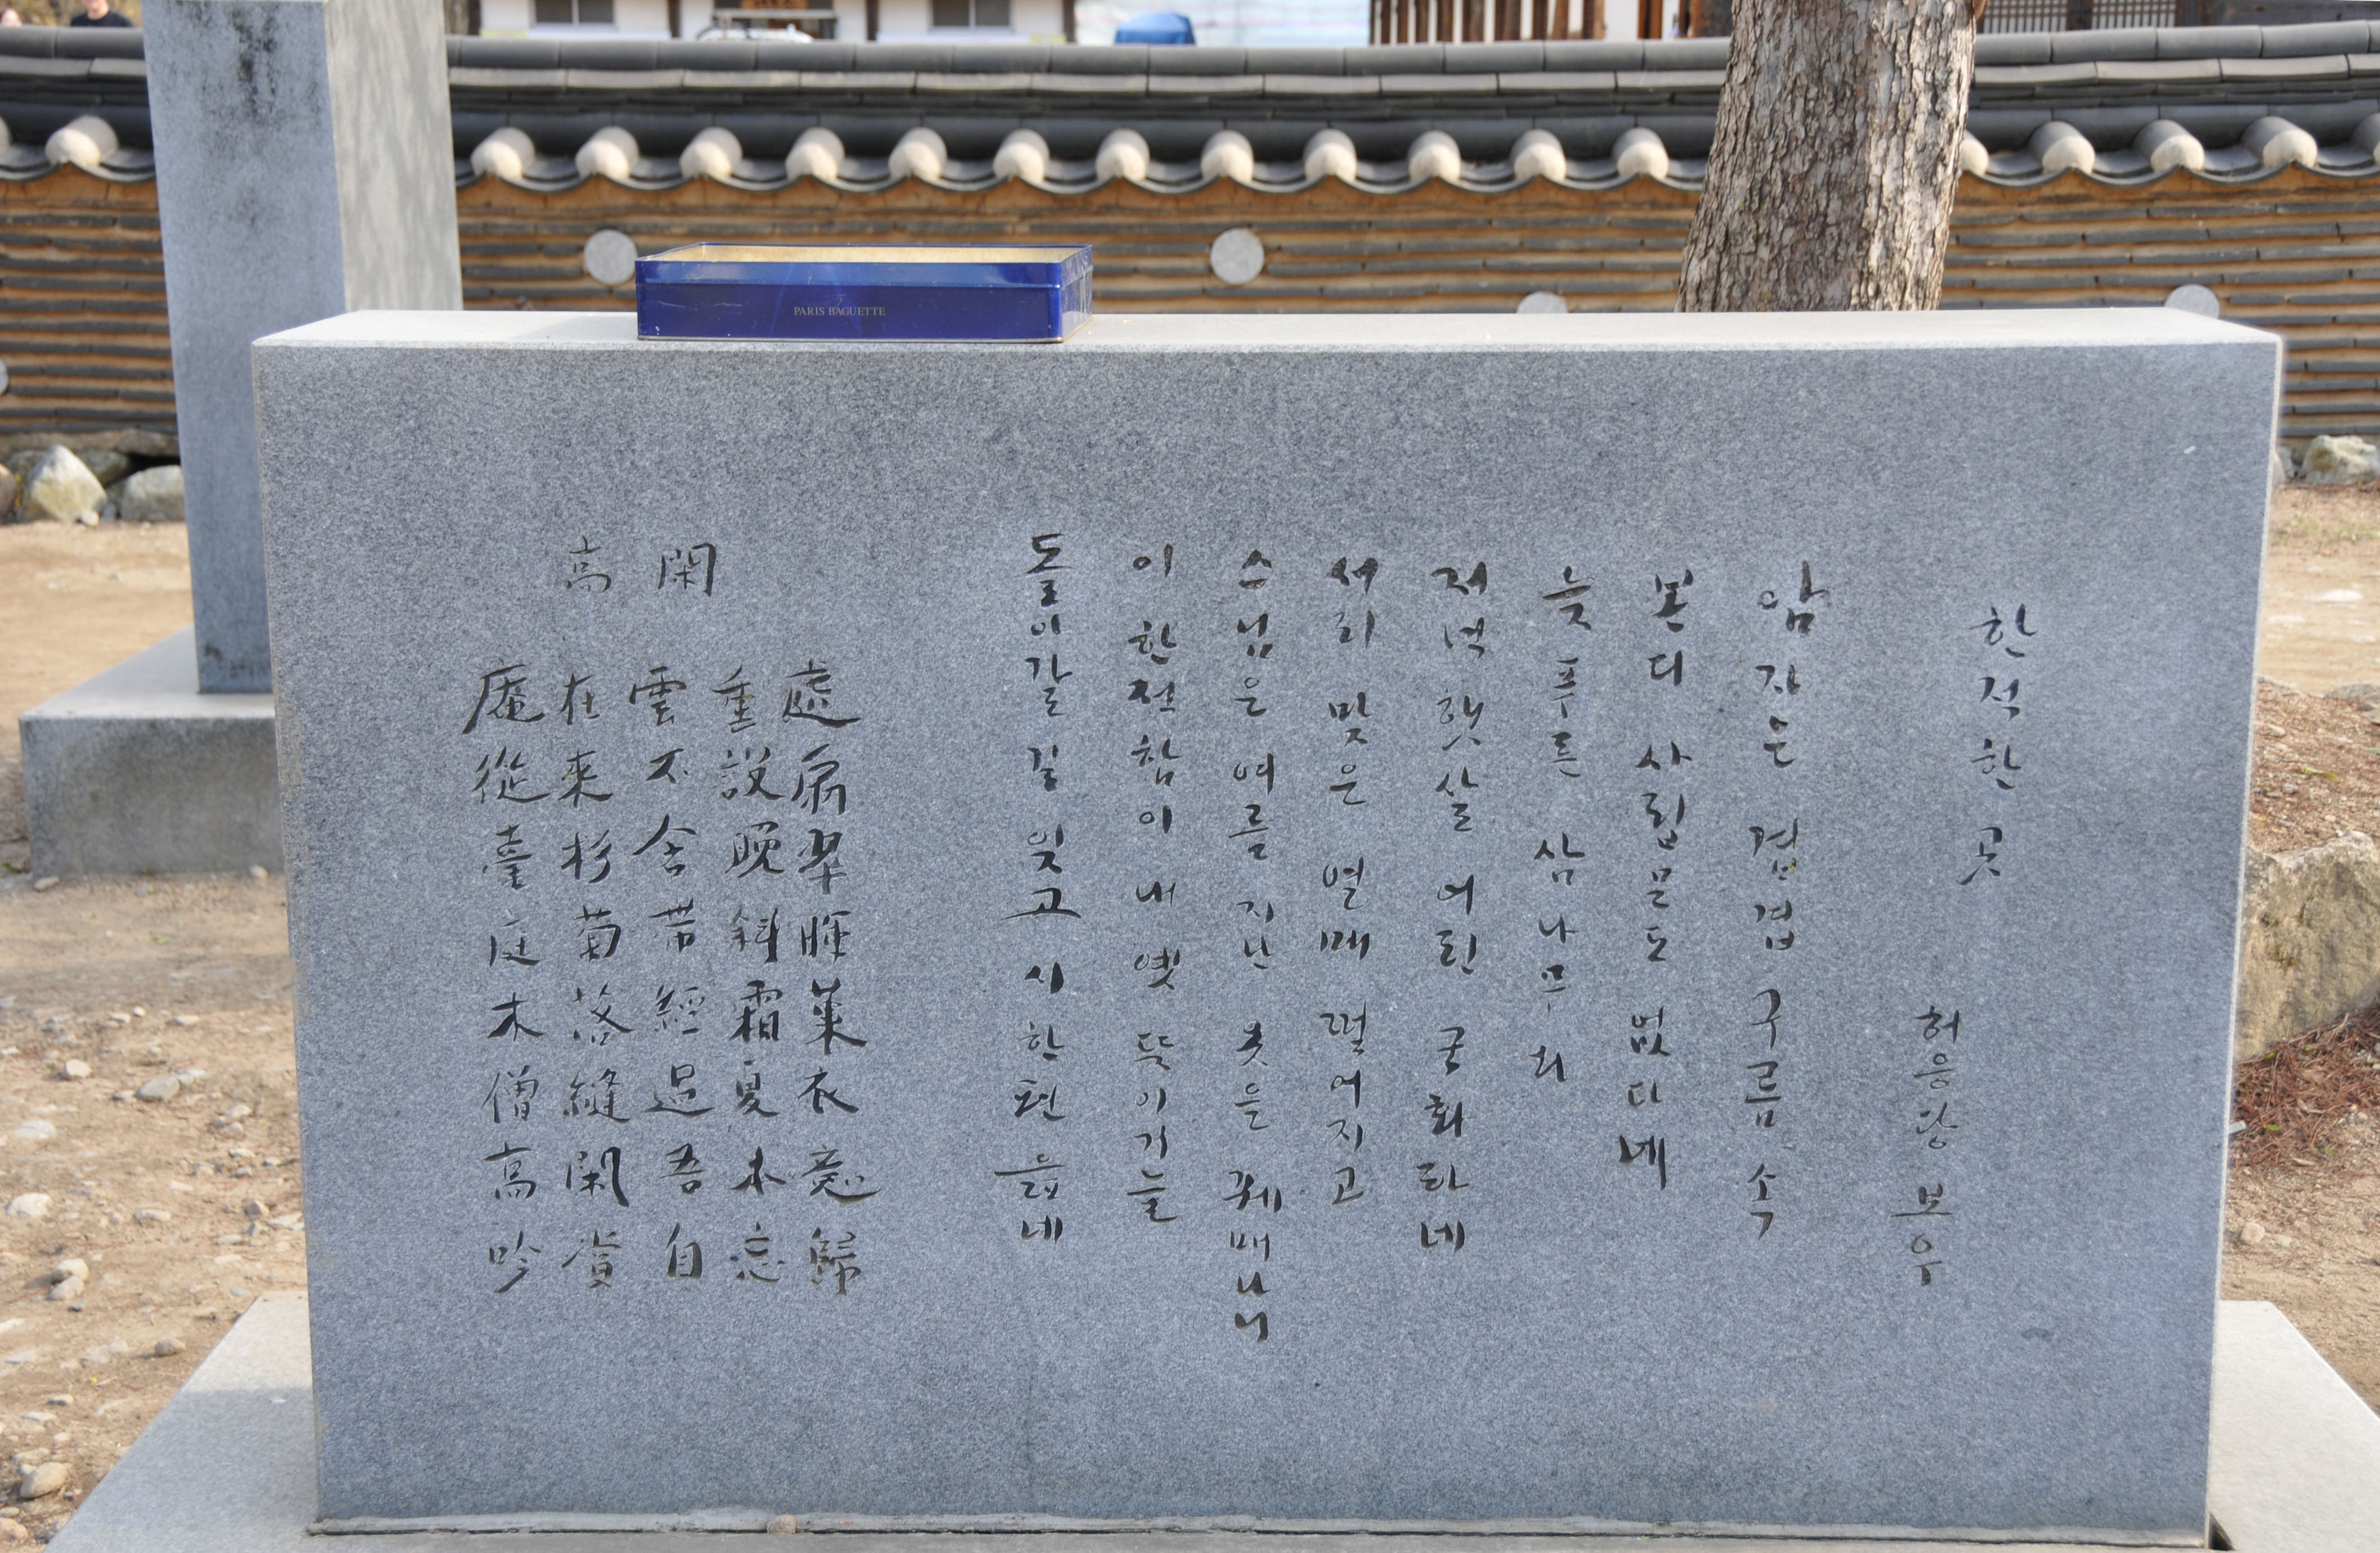 한적한 곳
허응당 보우
암자는 겹겹 구름 속
본디 사립문도 없다네
늦 푸른 삼나무
저녁 햇살 어린 국화라네
서리 맞은 열매 떨어지고
스님은 여름 지난 옷을 꿰매나니
이 한적함이 내 옛 뜻이거늘
돌아갈 길 잊고 시 한 편 읊네
高閑
庵在雲重處
從來不設扃
臺杉含晩翠
庭菊帶斜暉
木落經霜葉
僧縫過夏衣
高閑吾本意
吟賞自忘歸
PARIS BAGUETTE